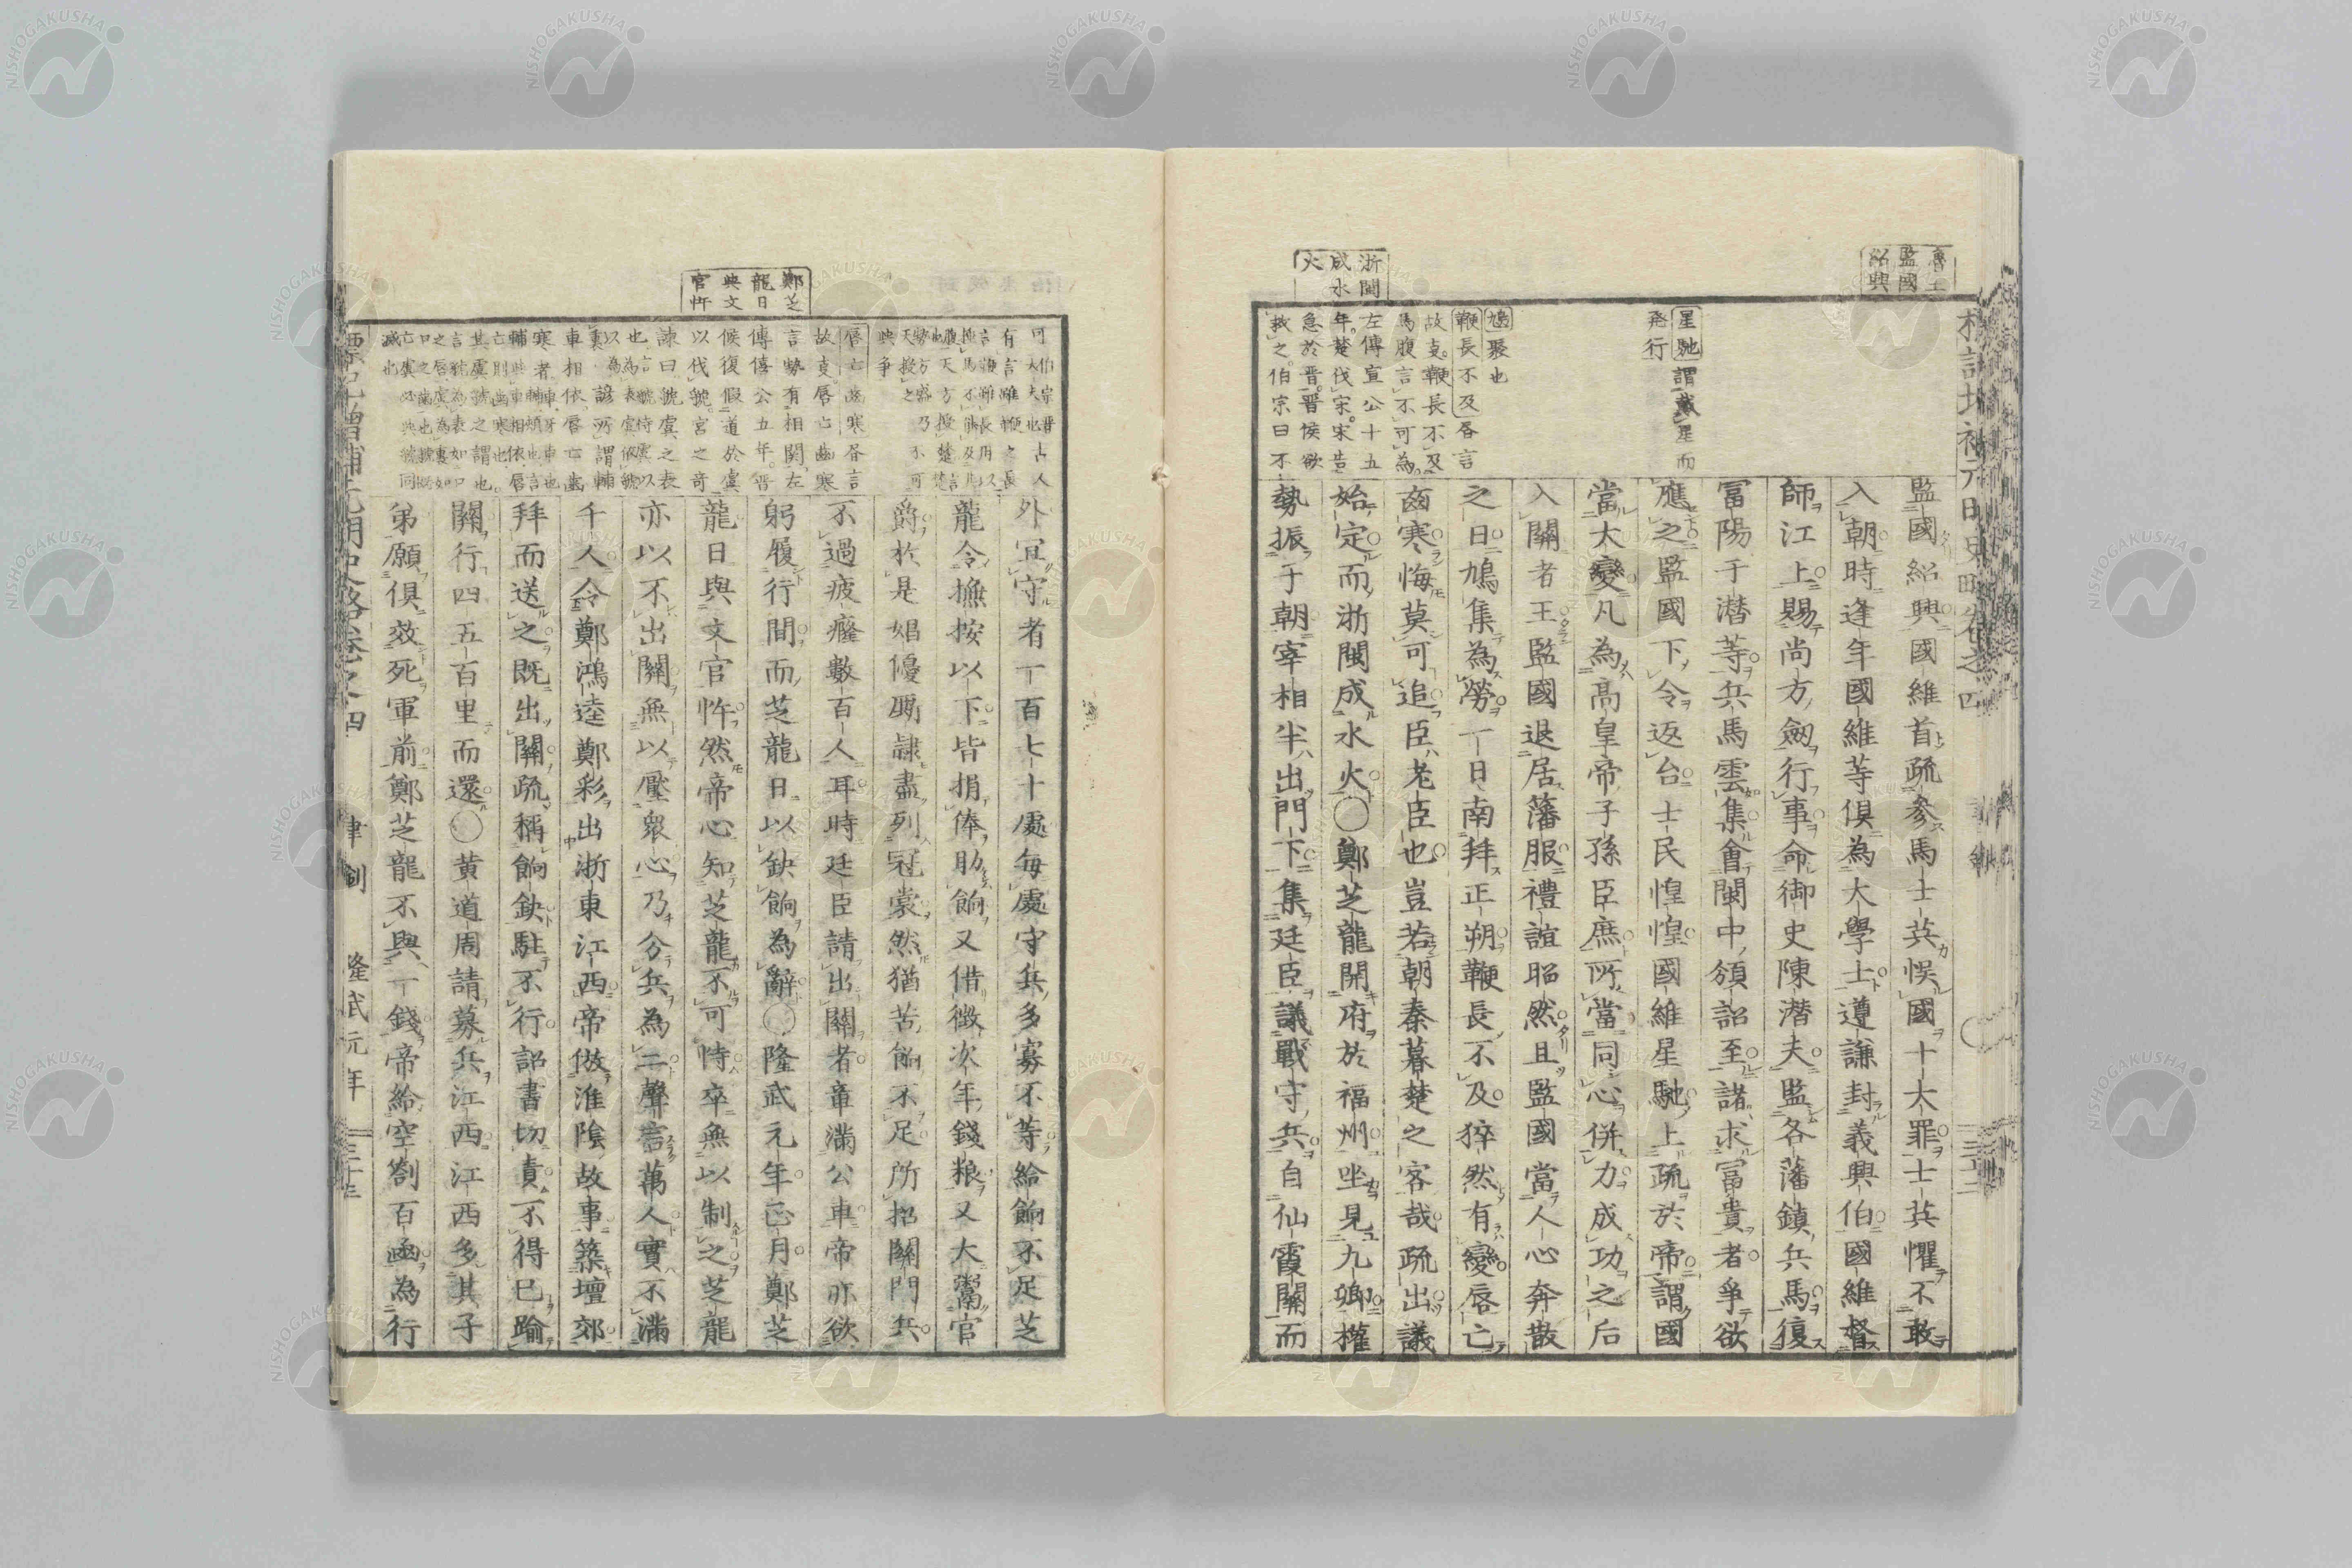 監國
紹興
浙閩
成水
火
星馳謂戴星而
発行
鳩聚也
鞭長不及唇言
故支鞭長不及
馬腹言不可為
左傳宣公十五
年楚伐宋宋告
急於晋晋侯欲
救之伯宗曰不
監國紹興國維首疏參馬士英悞國十大罪士英懼不敢
入朝時逢年國維等俱為大學士遵謙封義興伯國維督
師江上賜尚方劔行事命御史陳潜夫監各藩鎮兵馬復
冨陽于潜等兵馬雲集會閩中頒詔至諸求冨貴者爭欲
應之監國下令返台士民惶惶國維星馳上疏於帝謂國
當大變凡為高皇帝子孫臣庶所當同心併力成功之后
入關者王監國退居藩服禮誼昭然且監國當人心奔散
之日鳩集為勞一日南拜正朔鞭長不及猝然有變唇亡
齒寒悔莫可追臣老臣也豈若朝秦暮楚之客哉疏出議
始定而浙閩成水火○鄭芝龍開府於福州坐見九卿權
勢振于朝宰相半出門下集廷臣議戰守兵自仙霞關而
鄭芝
龍日
與文
官忤
可伯宗晋大夫也古人
有言雖鞭之長
映争
唇亡齒寒唇言
故支唇亡齒寒
言勢有相関左
傳僖公五年晋
候復假道於虞
以伐虢宮之奇
諫曰虢虞之表
車相依唇亡齒
寒者
外冝守者一百七十處毎處守兵多寡不等給餉不足芝
龍令撫按以下皆捐俸助餉又借徴次年錢粮又大鬻官
爵於是娼優厮隷盡列冠裳然猶苦餉不足所招關門兵
不過疲癃數百人耳時廷臣請出關者章滿公車帝亦欲
躬履行間而芝龍日以缺餉為辭○隆武元年正月鄭芝
龍日與文官忤然帝心知芝龍不可恃卒無以制之芝龍
亦以不出關無以壓衆心乃分兵為二聲言萬人實不滿
千人令鄭鴻逵鄭彩出浙東江西帝倣淮陰故事築壇郊
拜而送之既出關疏稱餉缺駐不行詔書切責不得已踰
關行四五百里而還○黄道周請募兵江西江西多其子
弟願俱效死軍前鄭芝龍不與一錢帝給空劄百凾為行
隆武元年